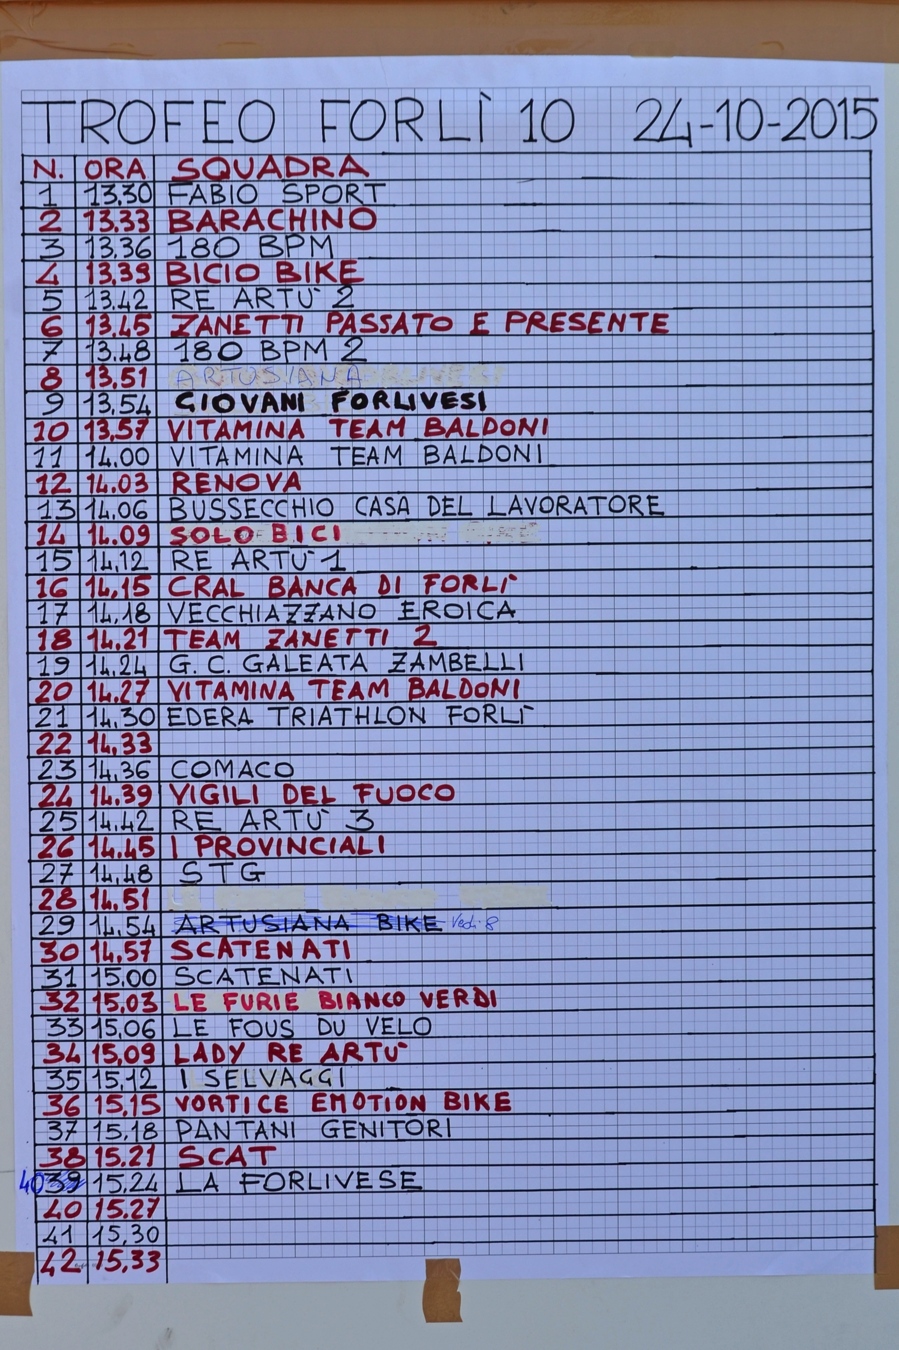 TROFEO FORLÌ 10 24-10-2015
N. ORA SQUADRA
1 13.30 FABIO SPORT
2 13.33 BARACHINO
3 13.36 180 BPM
4 13.39 BICIO BIKE
5 13.42 RE ARTU' 2
6 13.45 ZANETTI PASSATO E PRESENTE
7 13.48 180 BPM 2
8 13.51 ARTUSIANA
9 13.54 GIOVANI FORLIVESI
10 13.57 VITAMINA TEAM BALDONI
11 14.00 VITAMINA TEAM BALDONI
12 14.03 RENOVA
13 14.06 BUSSECCHIO CASA DEL LAVORATORE
14 14.09 SOLO BICI
15 14.12 RE ARTU' 1
16 14.15 CRAL BANCA DI FORLI'
17 14.18 VECCHIAZZANO EROICA
18 14.21 TEAM ZANETTI 2
19 14.24 G.C. GALEATA ZAMBELLI
20 14.27 VITAMINA TEAM BALDONI
21 14.30 EDERA TRIATHLON FORLI'
22 14.33
23 14.36 COMACO
24 14.39 VIGILI DEL FUOCO
25 14.42 RE ARTU' 3
26 14.45 I PROVINCIALI
27 14.48 STG
28 14.51
29 14.54 ARTUSIANA BIKE Vedi 8
30 14.57 SCATENATI
31 15.00 SCATENATI
32 15.03 LE FURIE BIANCO VERDI
33 15.06 LE FOUS DU VELO
34 15.09 LADY RE ARTU'
35 15.12 I SELVAGGI
36 15.15 VORTICE EMOTION BIKE
37 15.18 PANTANI GENITORI
38 15.21 SCAT
40 39 15.24 LA FORLIVESE
40 15.27
41 15.30
42 15.33